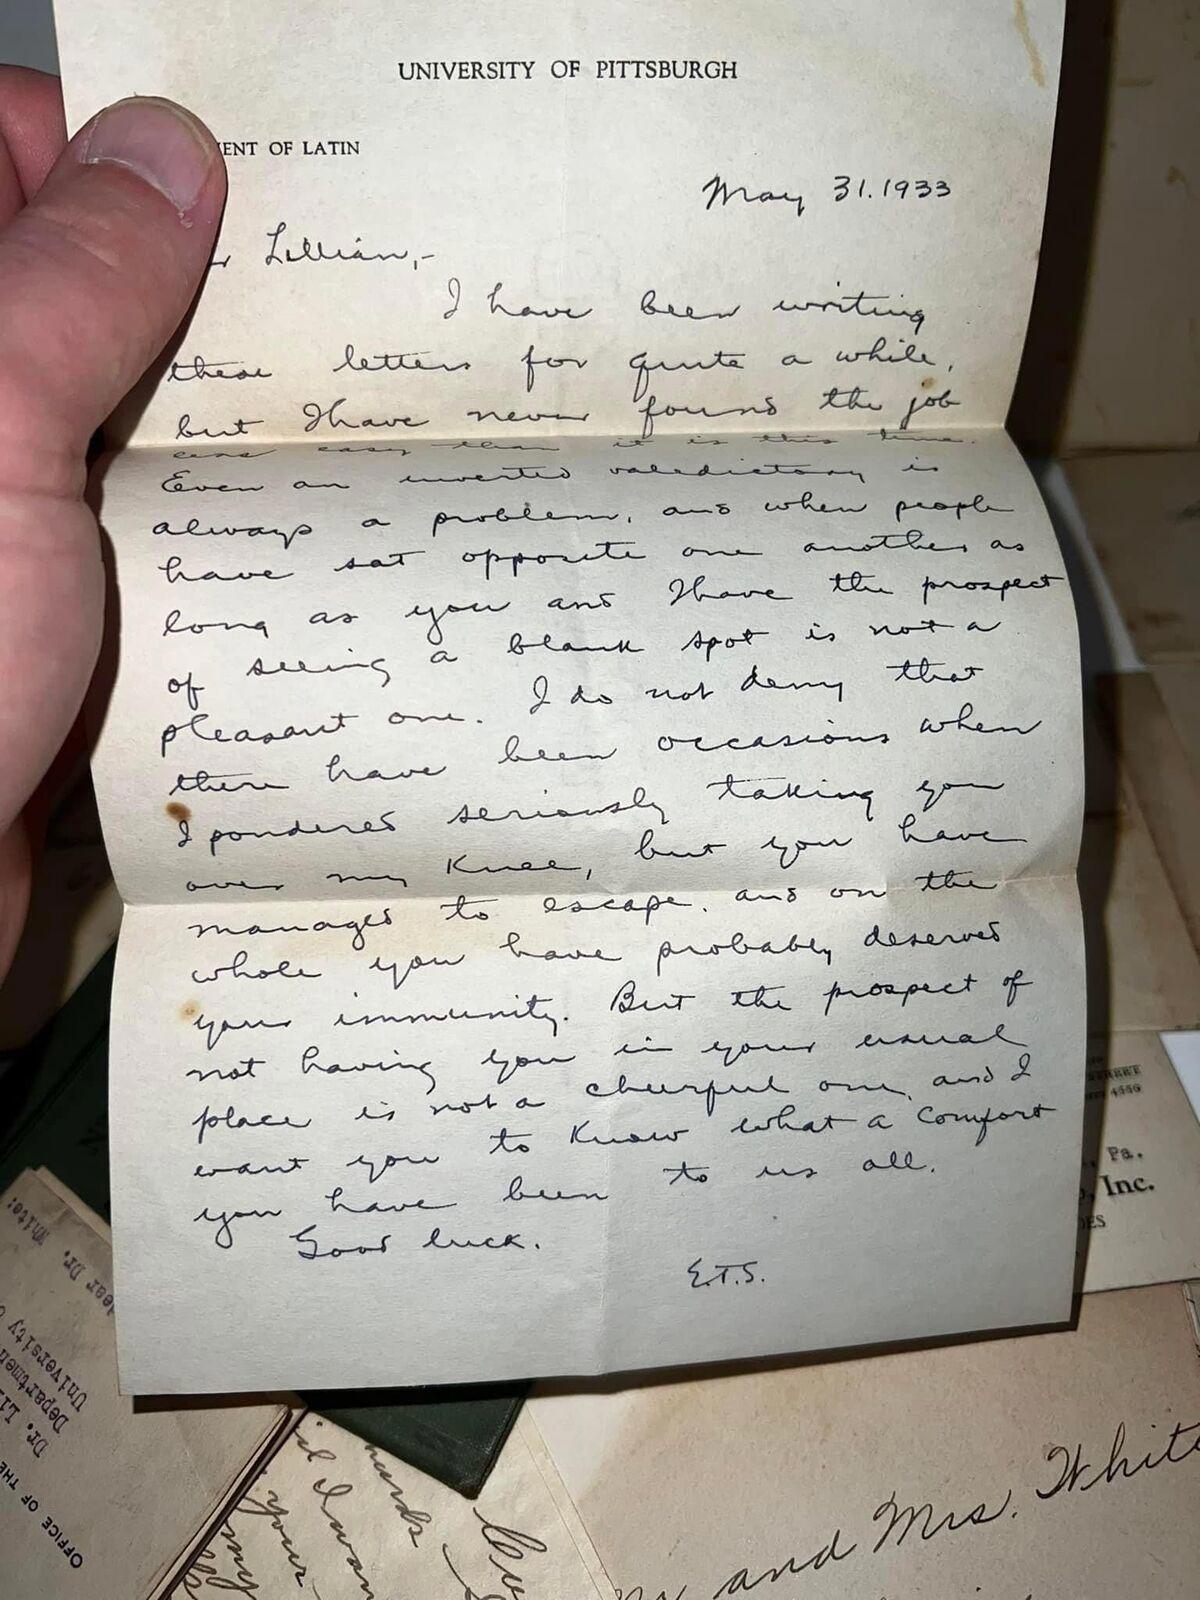 UNIVERSITY OF PITTSBURGH
MENT OF LATIN
May 31. 1933
Lillian,-
I have been writing
these letters for quite a while,
but I have never found the job
less easy than it is this time.
Even an inverted valedictory is
always a problem, and when people
have sat opposite one another as
long as you and I have the prospect
of seeing a blank spot is not a
pleasant one. I do not deny that
there have been occasions when
I pondered seriously taking you
over my knee, but you have
managed to escape, and on the
whole you have probably deserved
your immunity. But the prospect of
not having you in your usual
place is not a cheerful one, and I
want you to know what a comfort
you have been to us all.
Good luck.
E.T.S.
STREET
Pa.
Inc.
Dear Dr. White:
University
Dr.
OFFICE OF THE
I wan
your
my
and Mrs. White